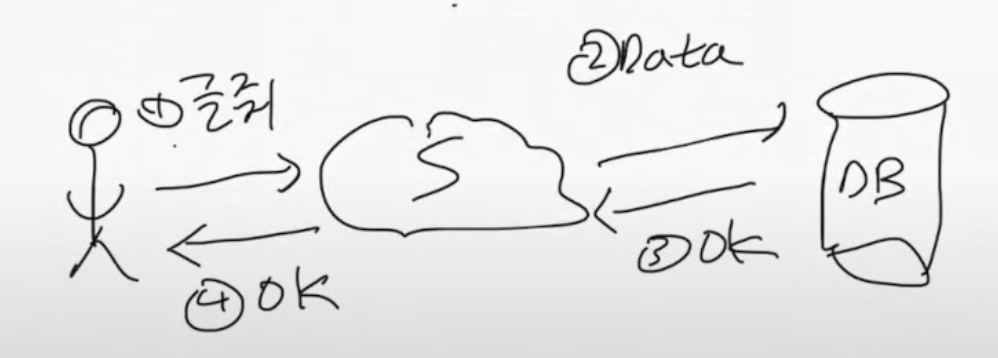 ① 글쥐
S
② Data
DB
③ OK
④ OK